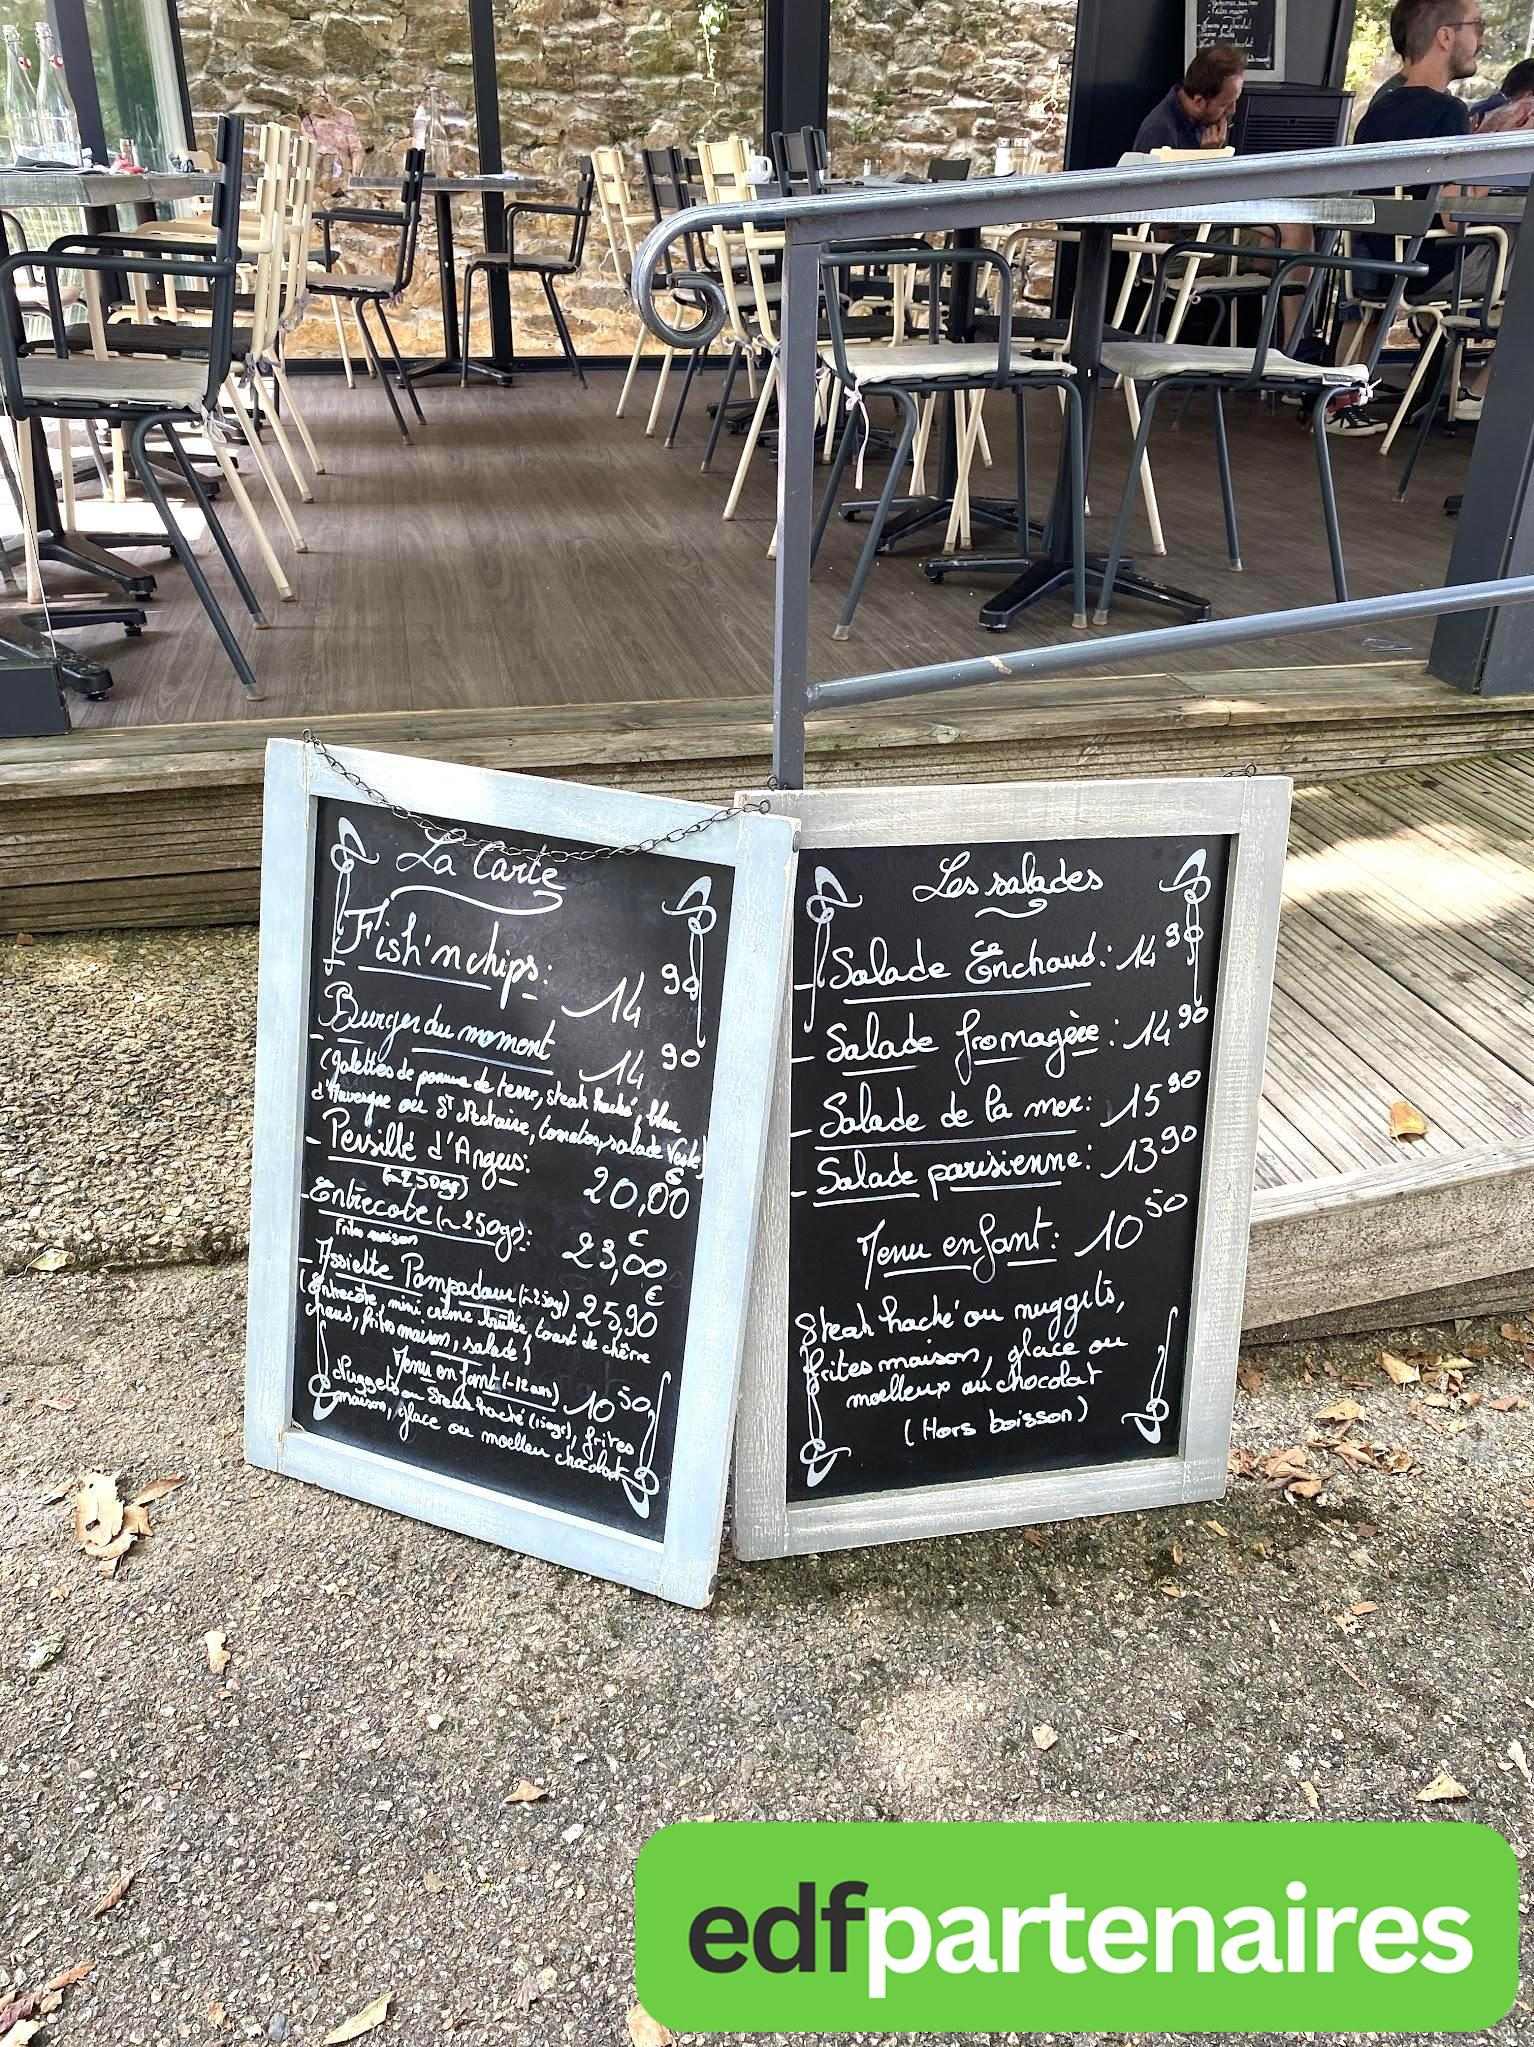 La Carte
Fish'n chips: 14 90
- Burger du moment 14 90
(Galettes de pomme de terre, steak haché, bleu
d'Auvergne ou St Nectaire, tomates, salade verte)
- Persillé d'Angus: 20,00 €
(~250gr)
- Entrecote (~250gr): 23,00 €
Frites maison
- Assiette Pompadour (~250gr) 25,90 €
(Entrecote, mini crème brûlée, toast de chèvre
chaud, frites maison, salade)
Menu enfant (-12 ans) 10 50
Nuggets ou Steak haché (150gr), frites
maison, glace ou moelleu chocolat
Les salades
- Salade Enchaud: 14 90
- Salade fromagère: 14 90
- Salade de la mer: 15 90
- Salade parisienne: 13 90
Menu enfant: 10 50
Steak haché ou nuggets,
frites maison, glace ou
moelleux au chocolat
(Hors boisson)
edfpartenaires